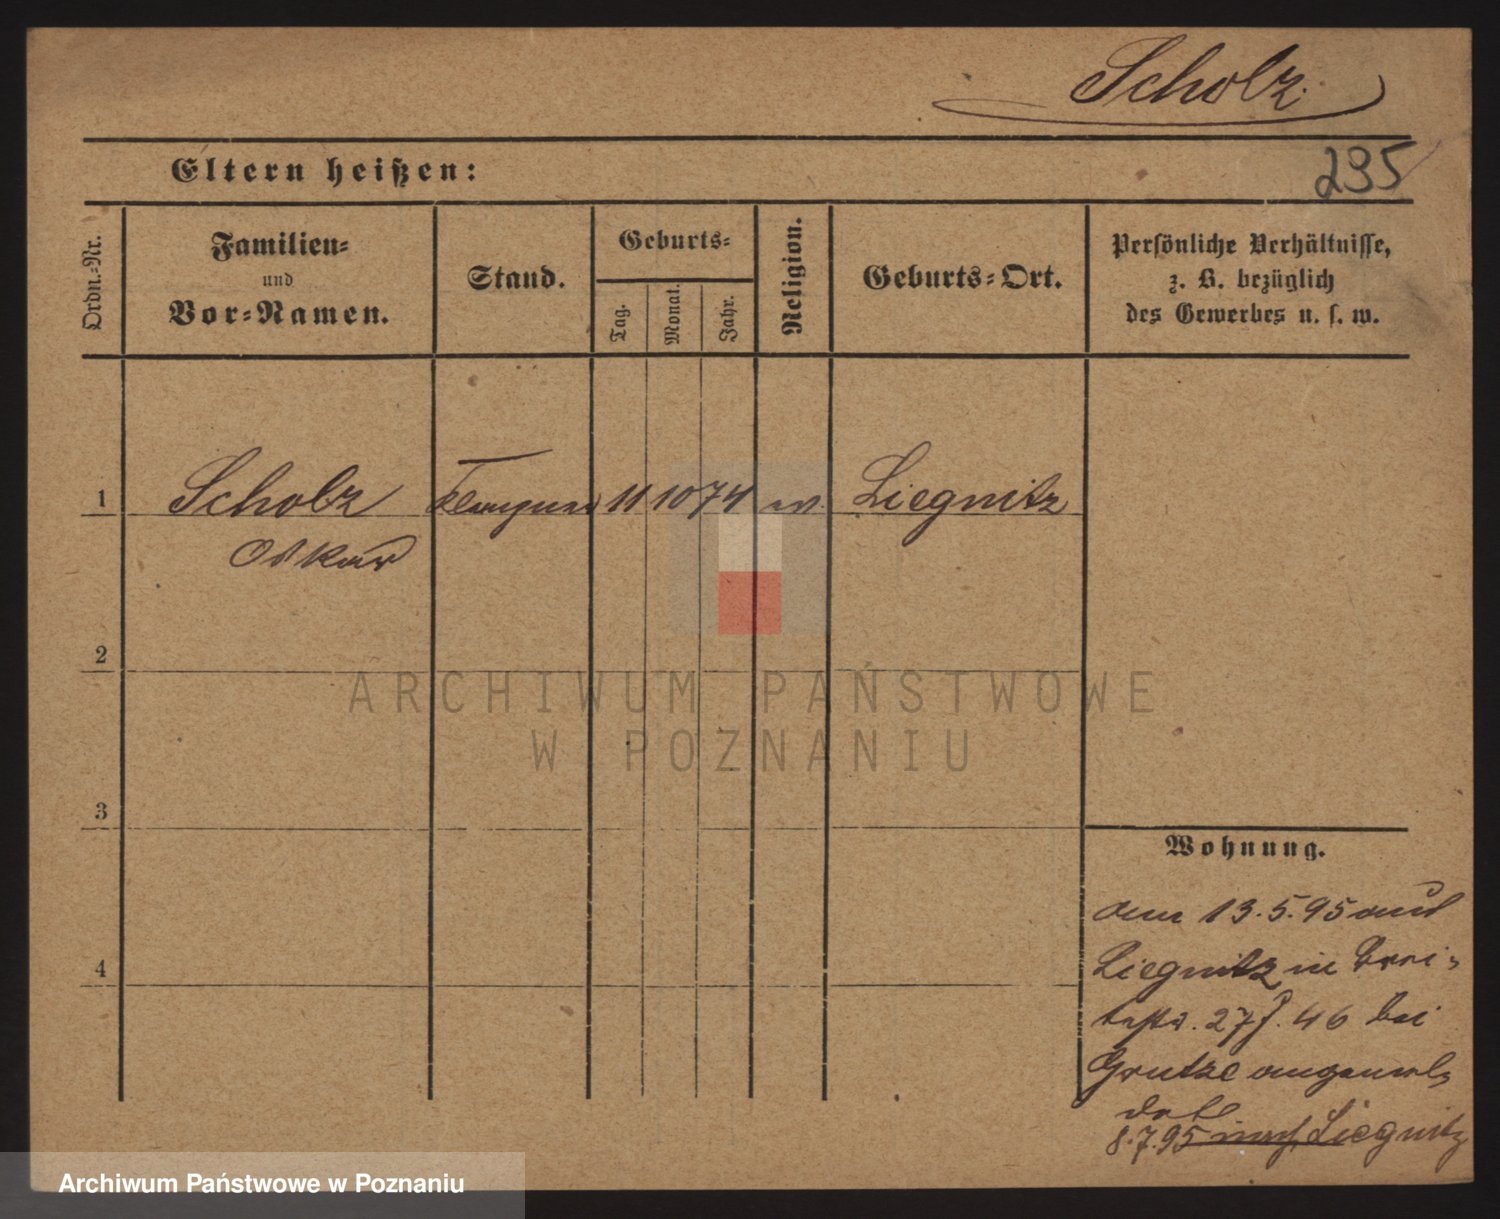 Scholz.
Eltern heißen:
295
Ordn.-Nr.
Familien-
und
Vor-Namen.
Stand.
Geburts-
Tag.
Monat.
Jahr.
Religion.
Geburts-Ort.
Persönliche Verhältnisse,
z. B. bezüglich
des Gewerbes u. s. w.
1
Scholz
Klempner
11
10
74
ev.
Liegnitz
Oskar
2
ARCHIWUM PAŃSTWOWE
W POZNANIU
3
Wohnung.
am 13.5.95 aus
4
Liegnitz in Brei-
testr. 27 J. 46 bei
Grutze angemel-
det
8.7.95 nach Liegnitz
Archiwum Państwowe w Poznaniu